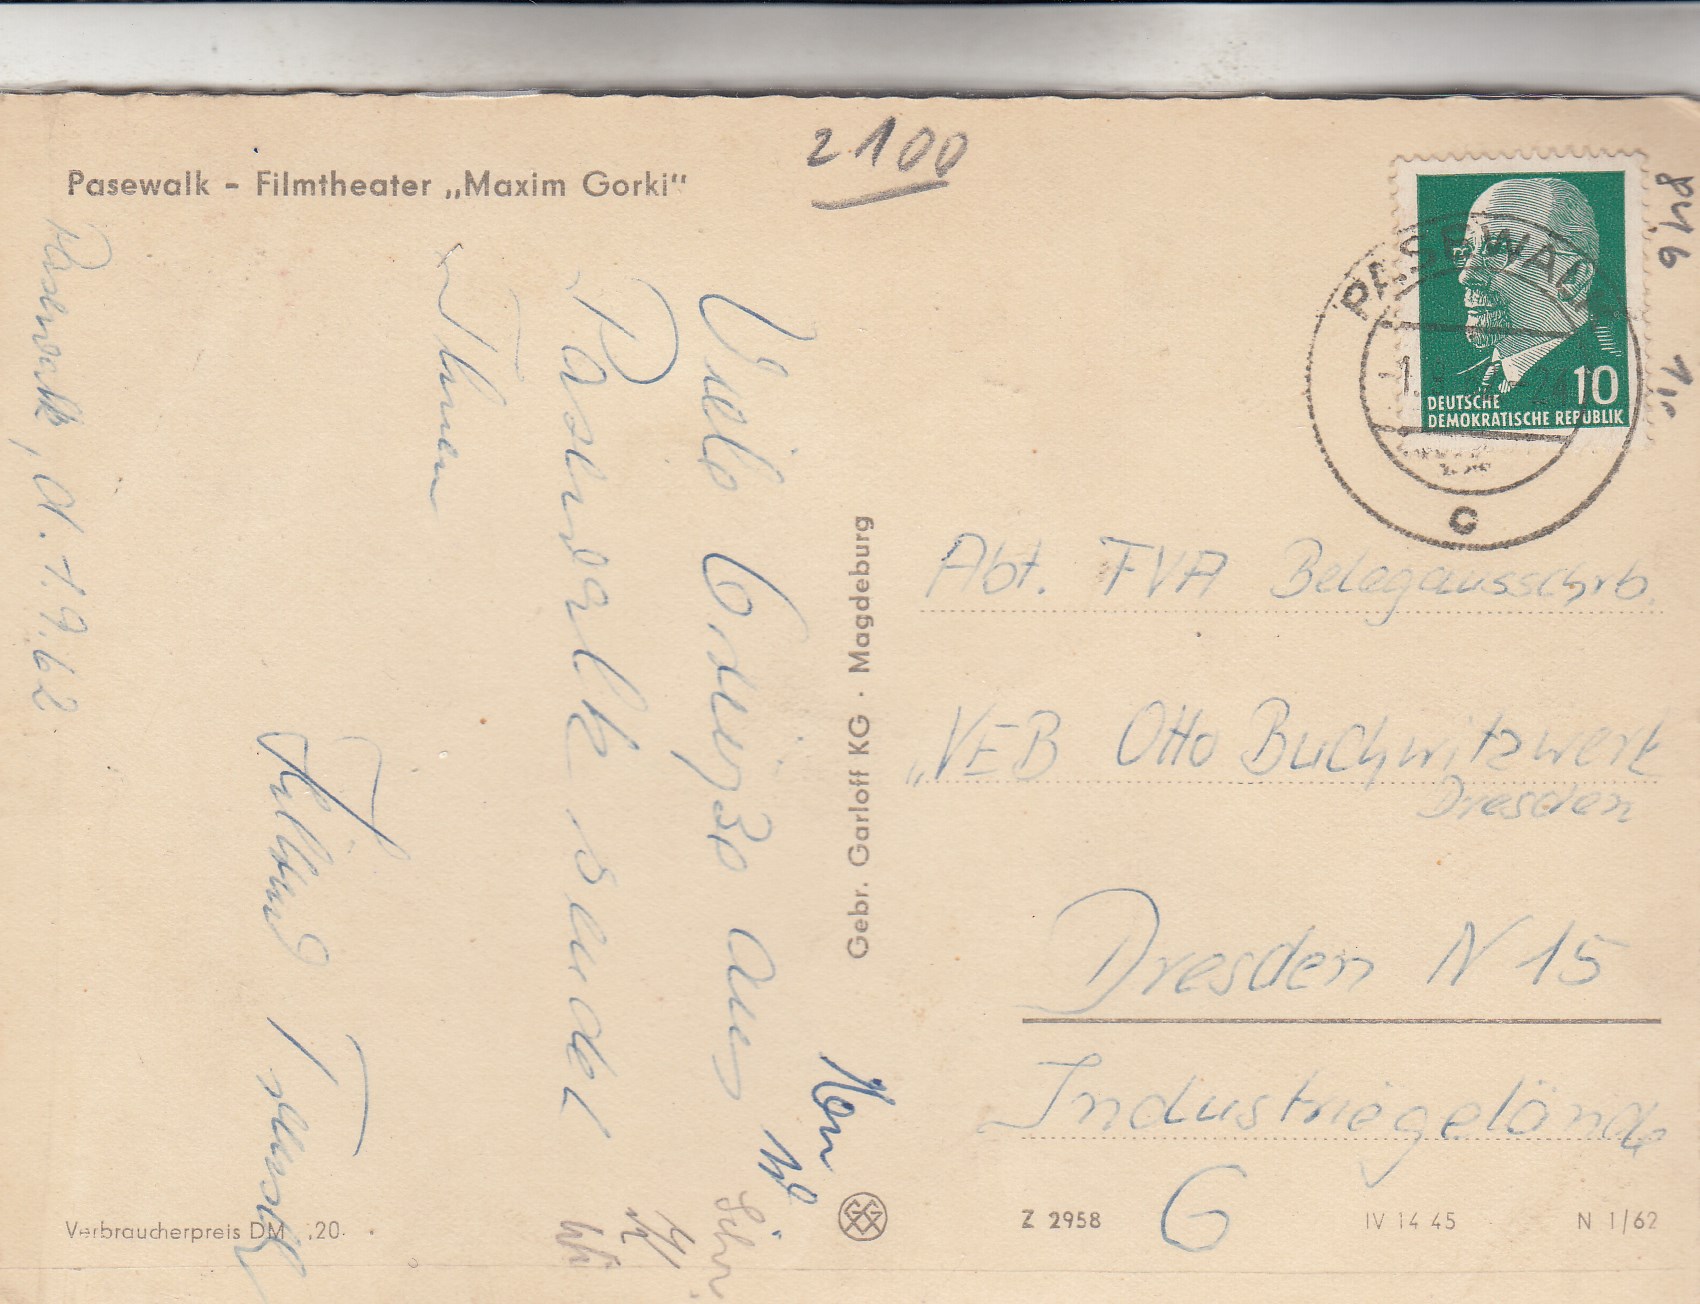 2100
Pasewalk - Filmtheater „Maxim Gorki“
Pasewalk, d. 1.9.62
Viele Grüße aus
Pasewalk sendet
Ihnen
Gebr. Garloff KG · Magdeburg
PASEWALK
DEUTSCHE
DEMOKRATISCHE REPUBLIK
10
c
Abt. FVA Belegausschrb.
„VEB Otto Buchwitzwerk
Dresden
Dresden N 15
Industriegelände
G
Verbraucherpreis DM -,20
Z 2958
IV 14 45
N 1/62